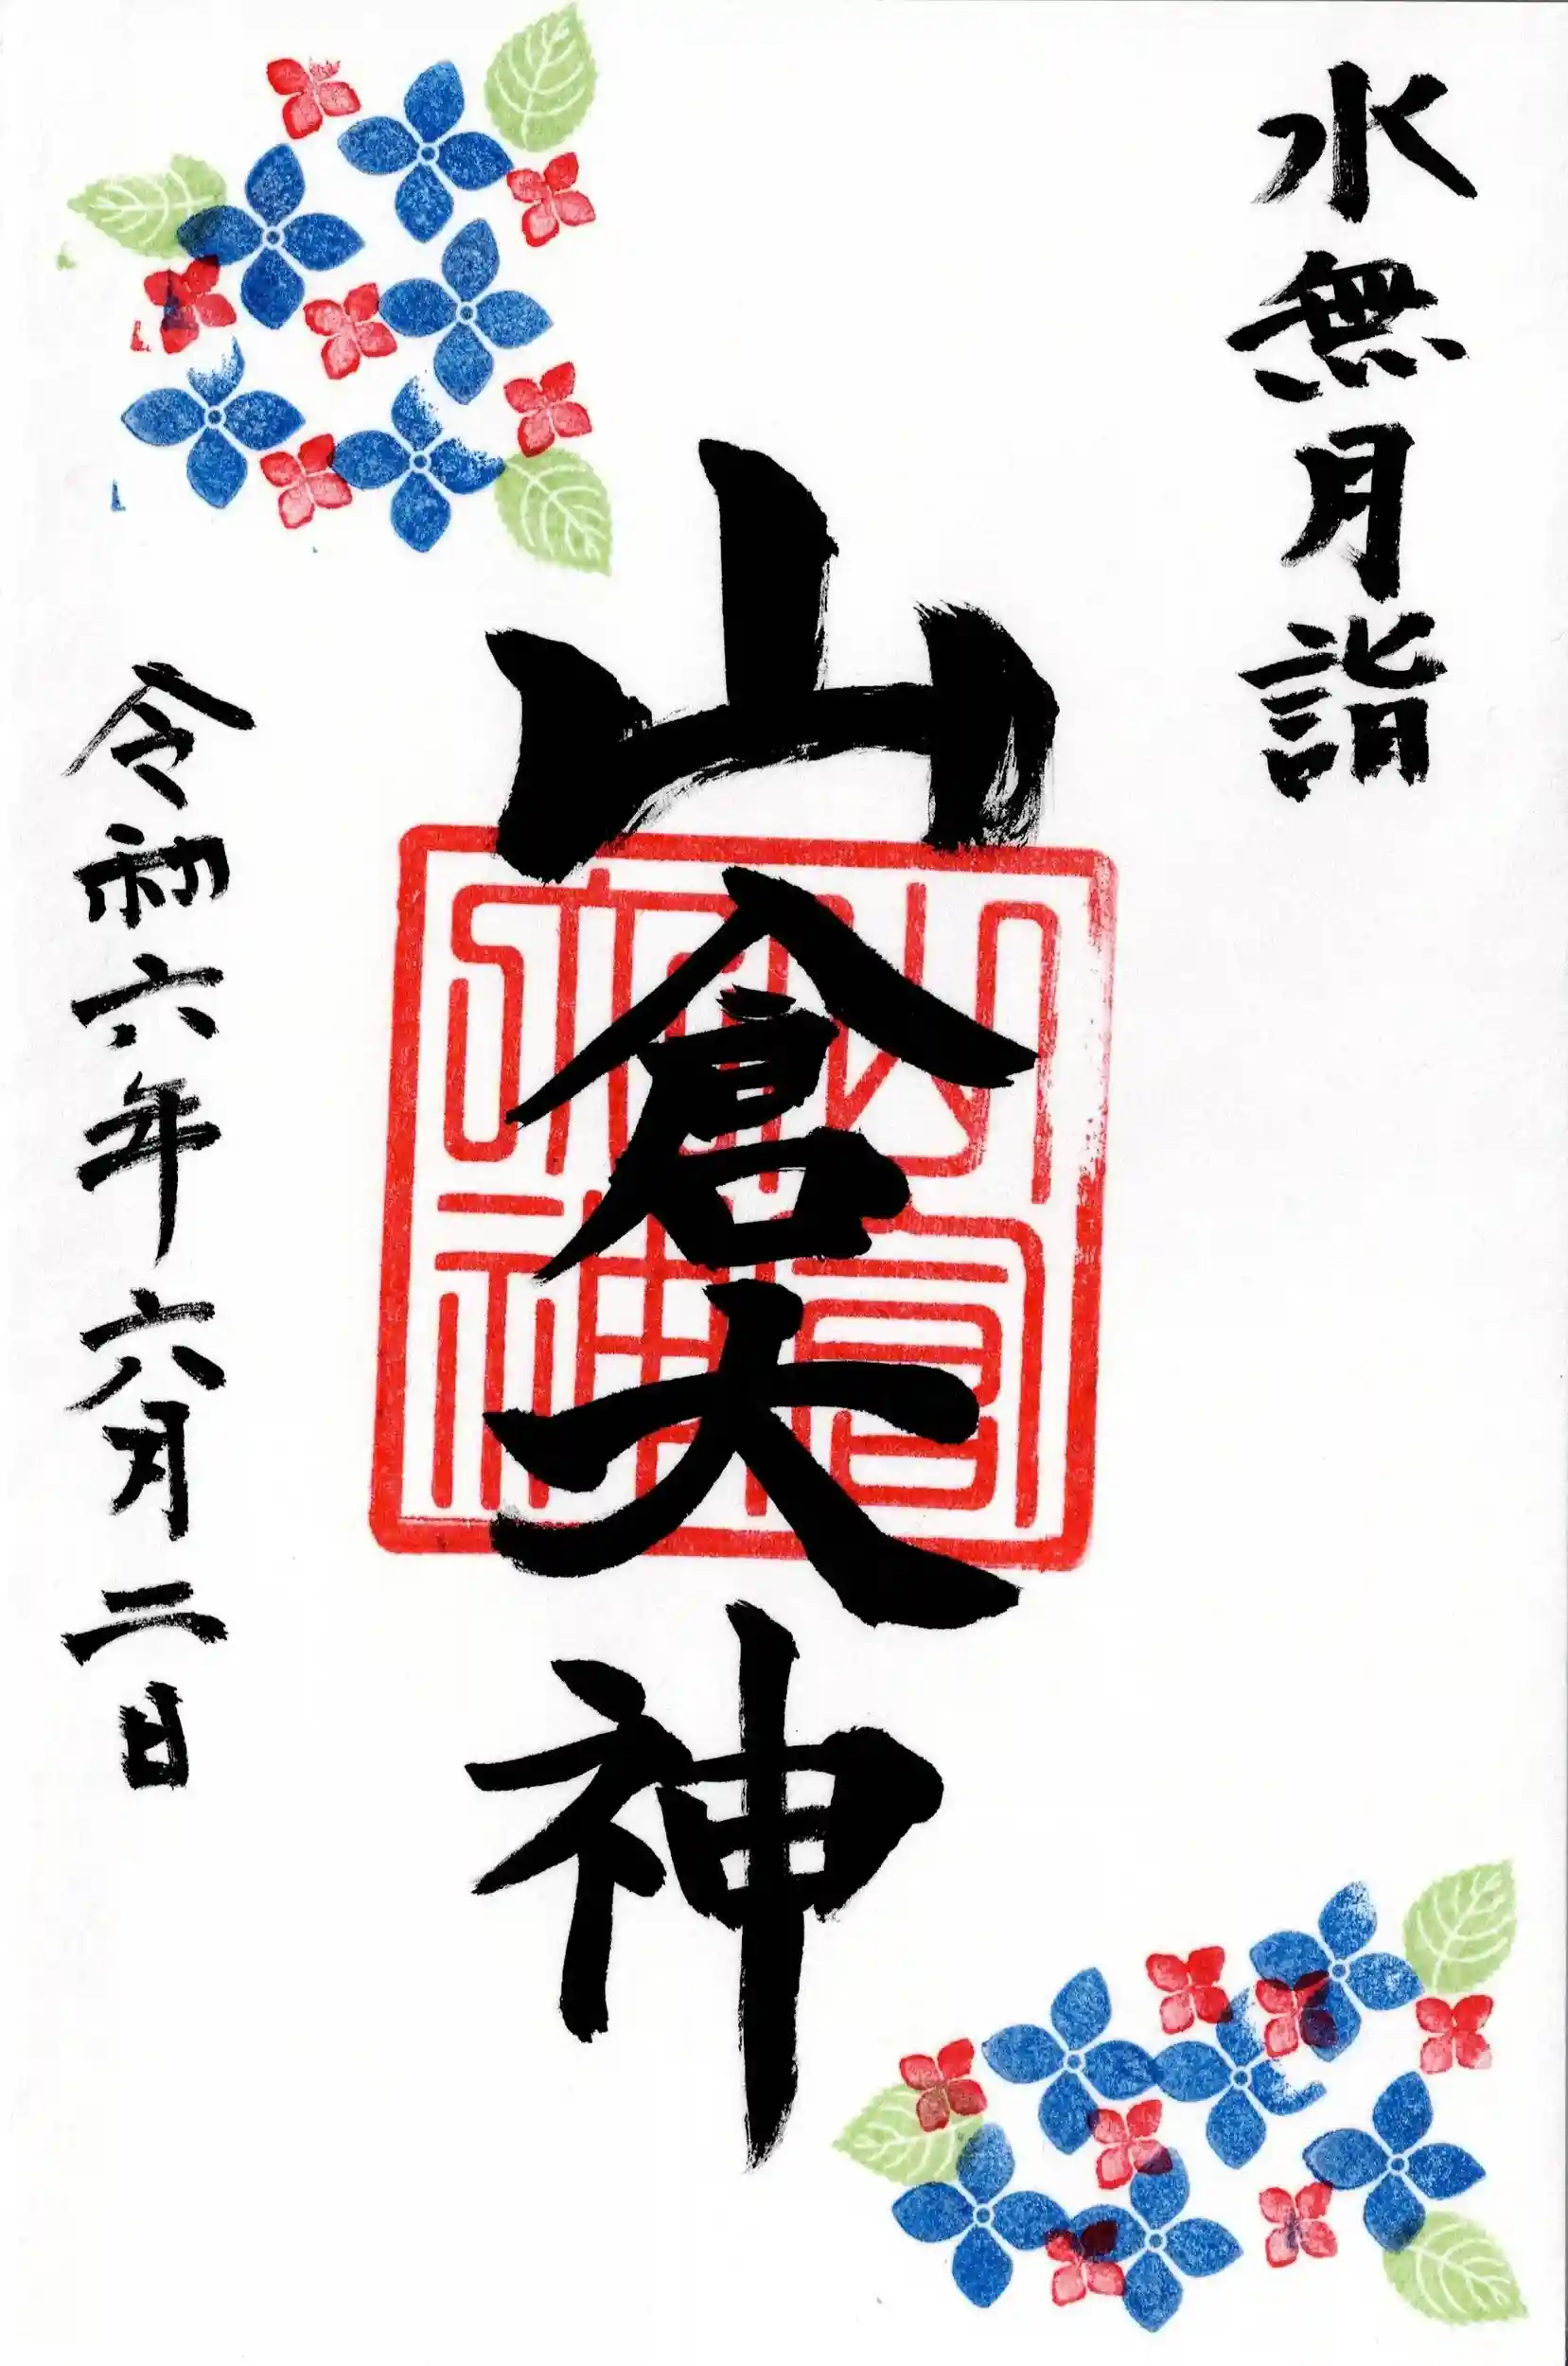 水無月詣
山倉大神
山倉大神
令和六年六月二日